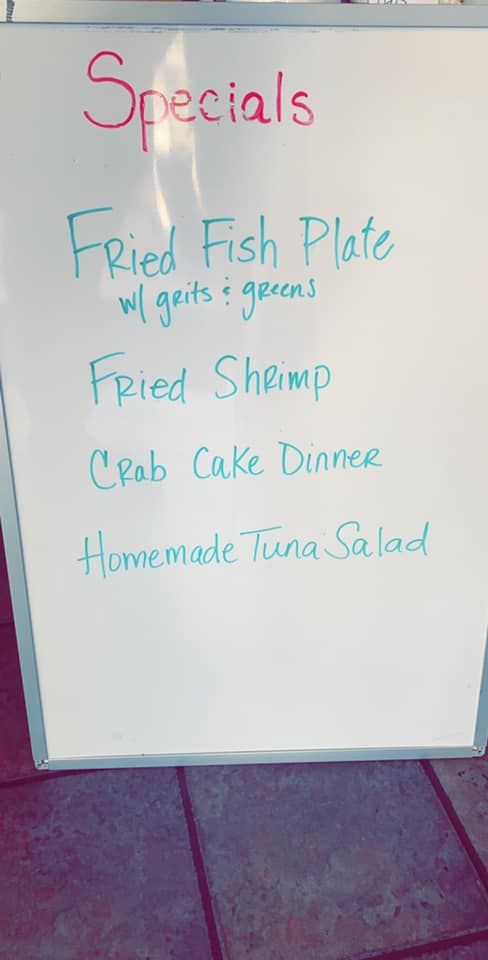 Specials
Fried Fish Plate
w/ grits & greens
Fried Shrimp
Crab Cake Dinner
Homemade Tuna Salad